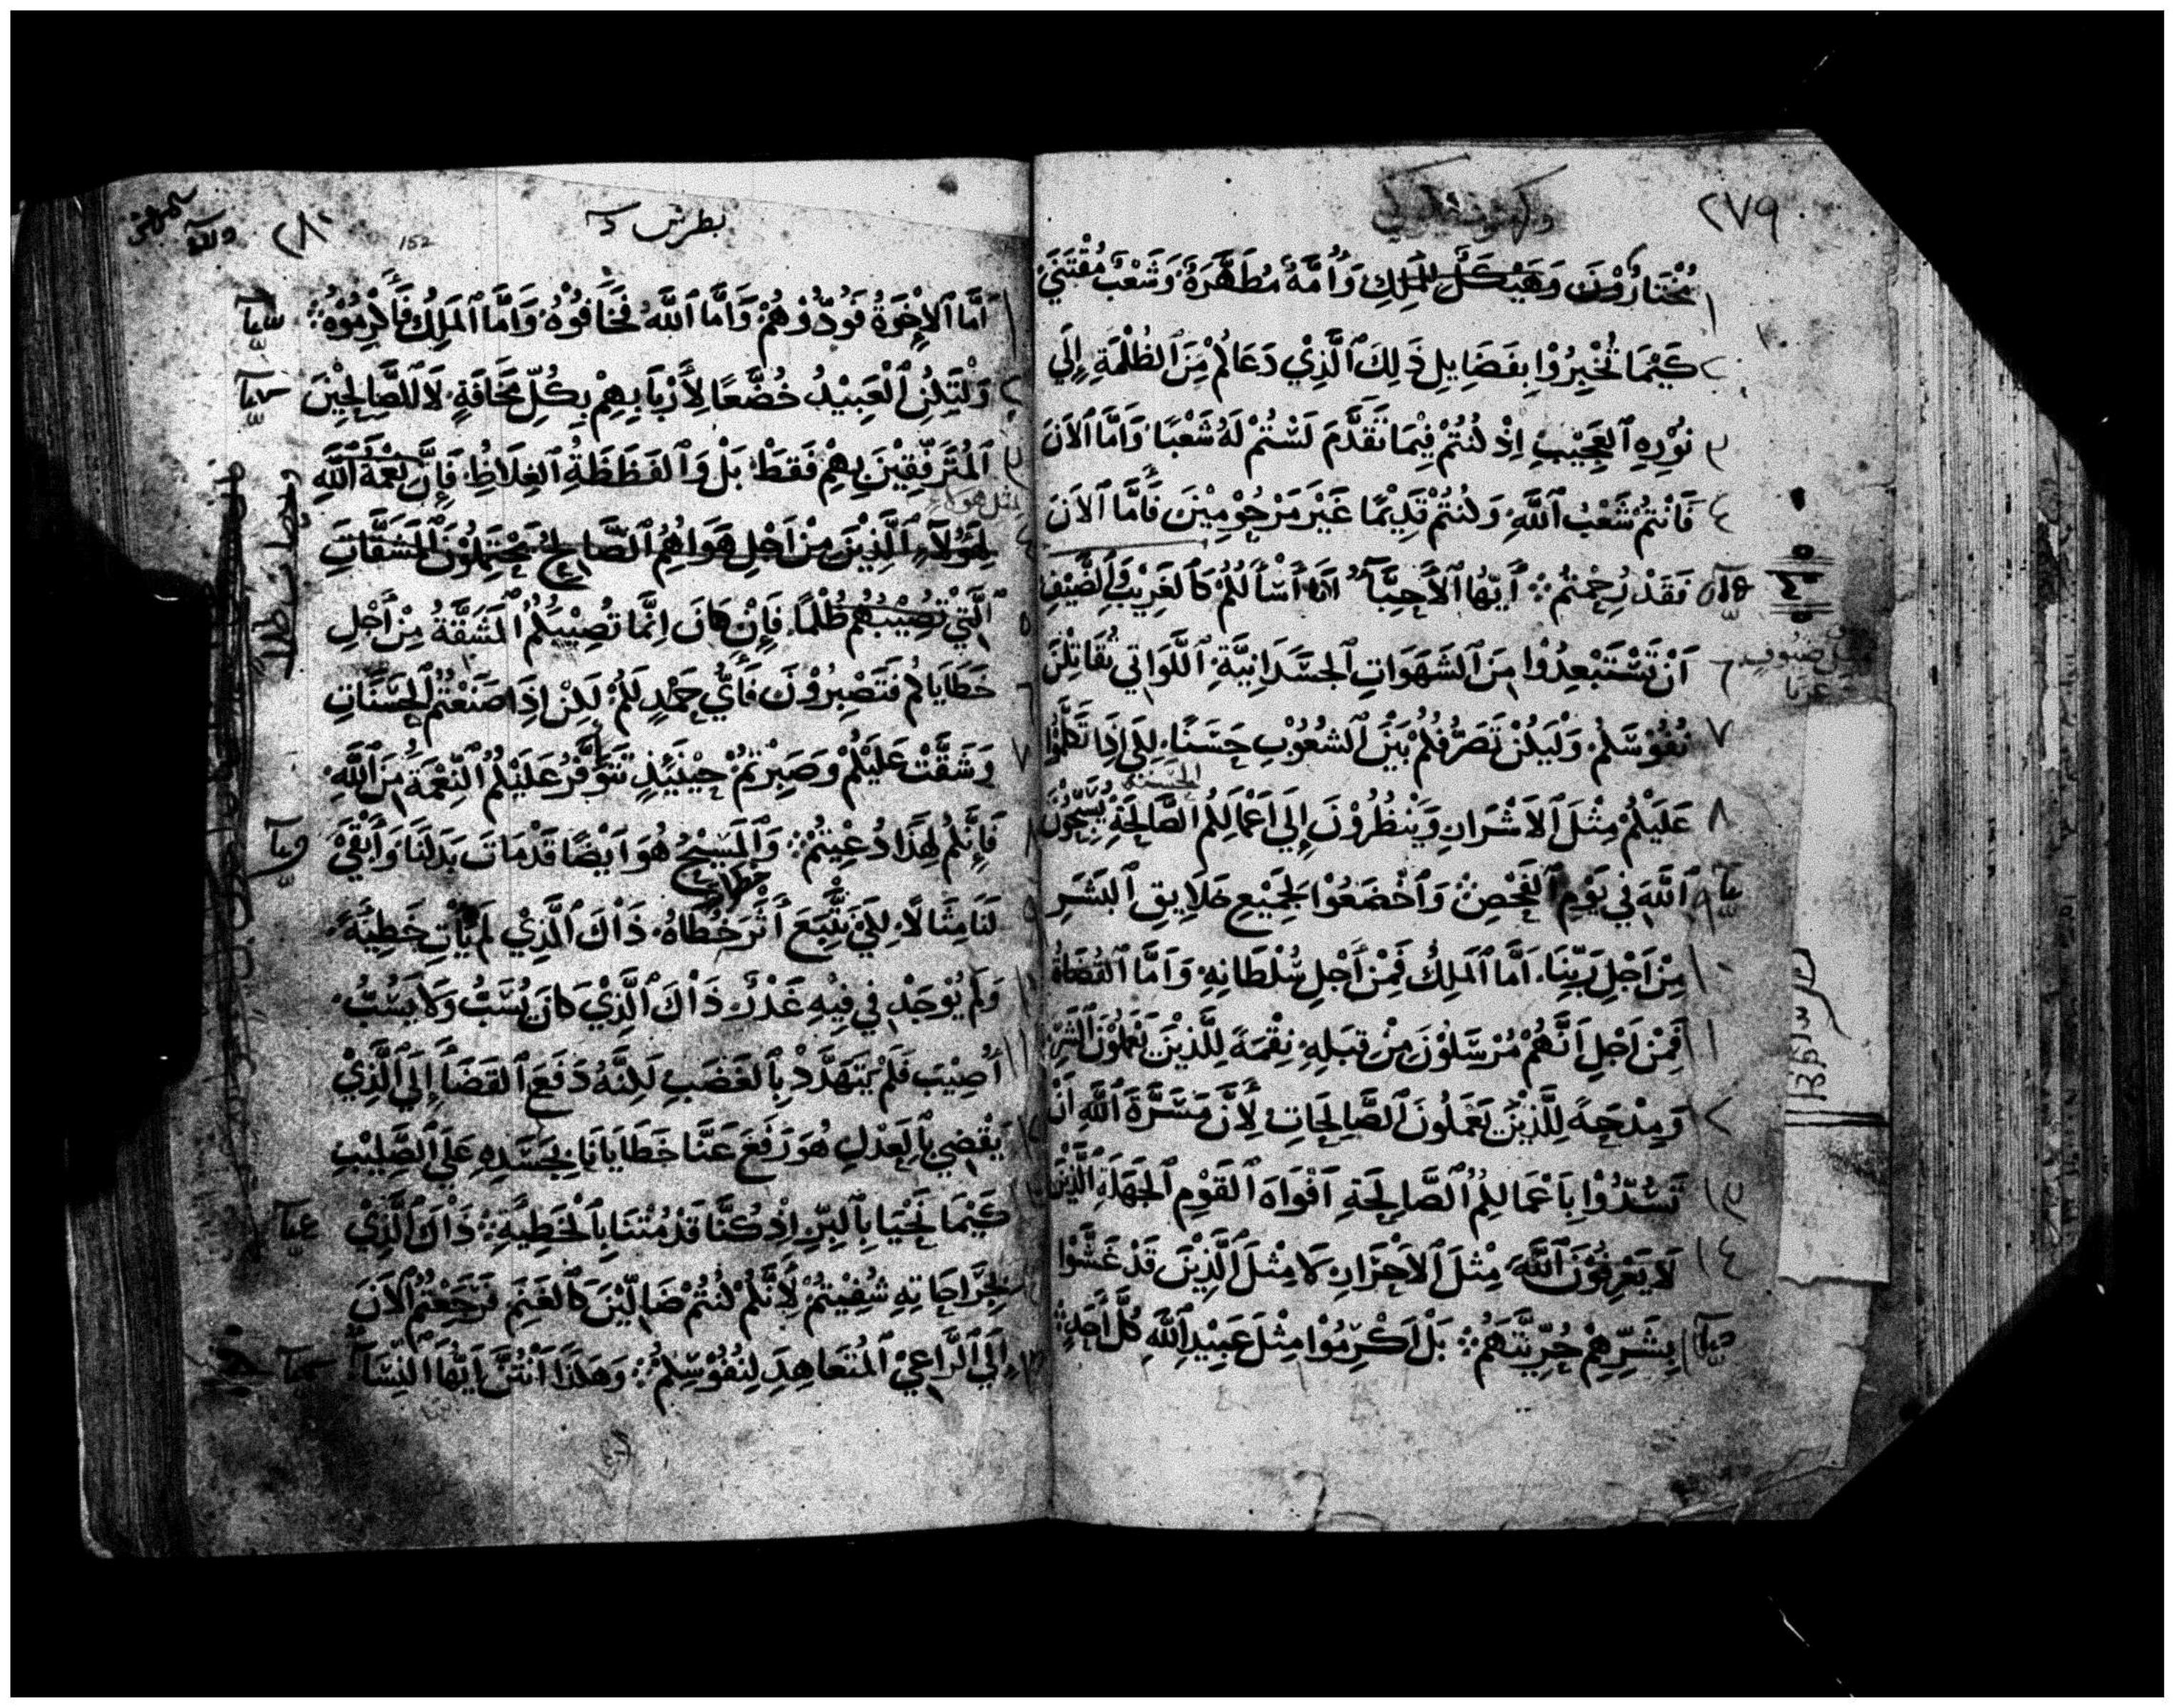 ٢٧٩
١ مُخْتَارُوْنَ وَهَيْكَلُ الْمَلِكِ وَأُمَّةٌ مُطَهَّرَةٌ وَشَعْبٌ مُقْتَنَيً
٢ كَيْمَا تُخْبِرُوْا بِفَضَايِلِ ذَلِكَ ٱلَّذِيْ دَعَاكُمْ مِنَ ٱلظُلْمَةِ إِلَي
٣ نُوْرِهِ ٱلعَجِيْبِ اِذْ كُنْتُمْ فِيْمَا تَقَدَّمَ لَسْتُمْ لَهُ شَعْبًا وَأَمَّا ٱلاَنَ
٤ فَاَنْتُمْ شَعْبُ ٱللَّهِ وَكُنْتُمْ قَدِيْمًا غَيْرَ مَرْحُوْمِيْنَ فَأَمَّا ٱلاَنَ
فَقَدْ رُحِمْتُمْ ۞ أَيُّهَا ٱلأَحِبَّآءُ اَنَا أَسْأَلُكُمْ كَٱلغَرِيْبِ وَٱلضَّيْفِ
٦ اَنْ تَسْتَبْعِدُوْا مِنَ ٱلشَهَوَاتِ ٱلجَسَدَانِيَّةِ ٱللَّوَاتِي تُقَاتِلْنَ
٧ نُفُوْسَكُمْ وَلْيَكُنْ تَصَرُّفُكُمْ بَيْنَ ٱلشُعُوْبِ حَسَنًا لِكَي اِذَا تَكَلَّمُوْا
الحسنة
٨ عَلَيْكُمْ مِثْلَ ٱلاَشْرَارِ وَيَنْظُرُوْنَ إِلَي اَعْمَالِكُمُ ٱلصَّالِحَةِ يُسَبِّحُوْنَ
٩ ٱللَّهَ فِي يَوْمِ ٱلفَحْصِ وَٱخْضَعُوْا لِجَمِيْعِ خَلاَيِقِ ٱلبَشَرِ
١٠ مِنْ اَجْلِ رَبِّنَا اَمَّا ٱلمَلِكُ فَمِنْ أَجْلِ سُلْطَانِهِ وَاَمَّا ٱلقُضَاةُ
١١ فَمِنْ اَجْلِ اَنَّهُمْ مُرْسَلُوْنَ مِنْ قِبَلِهِ نِقْمَةً لِلَّذِيْنَ يَعْمَلُوْنَ ٱلشَرَّ
وَمِدْحَةً لِلَّذِيْنَ يَعْمَلُونَ ٱلصَّالِحَاتِ لِأَنَّ مَسَرَّةَ ٱللَّهِ اَنْ
١٣ تَسُدُّوْا بِاَعْمَالِكُمُ ٱلصَّالِحَةِ اَفْوَاهَ ٱلقَوْمِ ٱلجَهَلَةِ ٱلَّذِيْنَ
١٤ لاَ يَعْرِفُوْنَ ٱللَّهَ مِثْلَ ٱلاَحْرَارِ لاَ مِثْلَ ٱلَّذِيْنَ قَدْ غَشَّوْا
بِشَرِّهِمْ حُرِّيَّتَهُمْ ۞ بَلْ اَكْرِمُوْا مِثْلَ عَبِيْدِ ٱللَّهِ كُلَّ أَحَدٍ ۞
بطرس
152
٢٨٠
١ اَمَّا ٱلاِخْوَةُ فَوُدُّوْهُمْ وَاَمَّا ٱللَّهُ فَخَافُوْهُ وَاَمَّا ٱلمَلِكُ فَأَكْرِمُوْهُ ۞
٢ وَلْتَكُنِ ٱلْعَبِيْدُ خُضَّعًا لِأَرْبَابِهِمْ بِكُلِّ مَخَافَةٍ لاَ لِلصَّالِحِيْنَ
٣ ٱلمُتَرَفِّقِيْنَ بِهِمْ فَقَطْ بَلْ وَٱلفَظَظَةِ ٱلغِلاَظِ فَإِنَّ نِعْمَةَ ٱللَّهِ
مثل هولاء
٤ لِهَؤُلآءِ ٱلَّذِيْنَ مِنْ اَجْلِ هَوَاهُمُ ٱلصَّالِحُ يَحْتَمِلُوْنَ ٱلمَشَقَّاتِ
٥ ٱلَّتِيْ تُصِيْبُهُمْ ظُلْمًا فَإِنْ كَانَ اِنَّمَا تُصِيْبُكُمُ ٱلمَشَقَّةُ مِنْ أَجْلِ
٦ خَطَايَاكُمْ فَتَصْبِرُوْنَ فَأَيُّ حَمْدٍ لَكُمْ لَكِنْ اِذَا صَنَعْتُمُ ٱلحَسَنَاتِ
٧ وَشَقَّتْ عَلَيْكُمْ وَصَبِرْتُمْ حِيْنَيِذٍ تَتَوَفَّرُ عَلَيْكُمُ ٱلنِّعْمَةُ مِنَ ٱللَّهِ
٨ فَإِنَّكُمْ لِهَذَا دُعِيْتُمْ ۞ وَٱلمَسِيْحُ هُوَ اَيْضًا قَدْ مَاتَ بَدَلَنَا وَأَبْقَيَ
٩ لَنَا مِثَالاً لِكَيْ نَتَّبِعَ أَثَرَ خُطَاهُ ذَاكَ ٱلَّذِي لَمْ يَأْتِ خَطِيَّةً
١٠ وَلَمْ يُوْجَدْ فِي فِيْهِ غَدْرٌ ذَاكَ ٱلَّذِيْ كَانَ يُسَبُّ وَلاَ يَسُبُّ
١١ أُصِيْبَ فَلَمْ يَتَهَدَّدْ بِٱلغَضَبِ لَكِنَّهُ دَفَعَ ٱلقَضَآءَ إِلَي ٱلَّذِيْ
١٢ يَقْضِي بِٱلعَدْلِ هُوَ رَفَعَ عَنَّا خَطَايَانَا بِجَسَدِهِ عَلَي ٱلصَّلِيْبِ
كَيْمَا نَحْيَا بِٱلبِرِّ اِذْ كُنَّا قَدْ مُتْنَا بِٱلْخَطِيَّةِ ۞ ذَاكَ ٱلَّذِيْ
بِجِرَاحَاتِهِ شُفِيْتُمْ لِأَنَّكُمْ كُنْتُمْ ضَالِّيْنَ كَٱلغَنَمِ فَرَجَعْتُمُ ٱلاَنَ
إِلَي ٱلرَّاعِيْ ٱلمُتَعَاهِدِ لِنُفُوْسِكُمْ ۞ وَهَكَذَا اَنْتُنَّ اَيَّتُهَا ٱلنِّسَآءُ